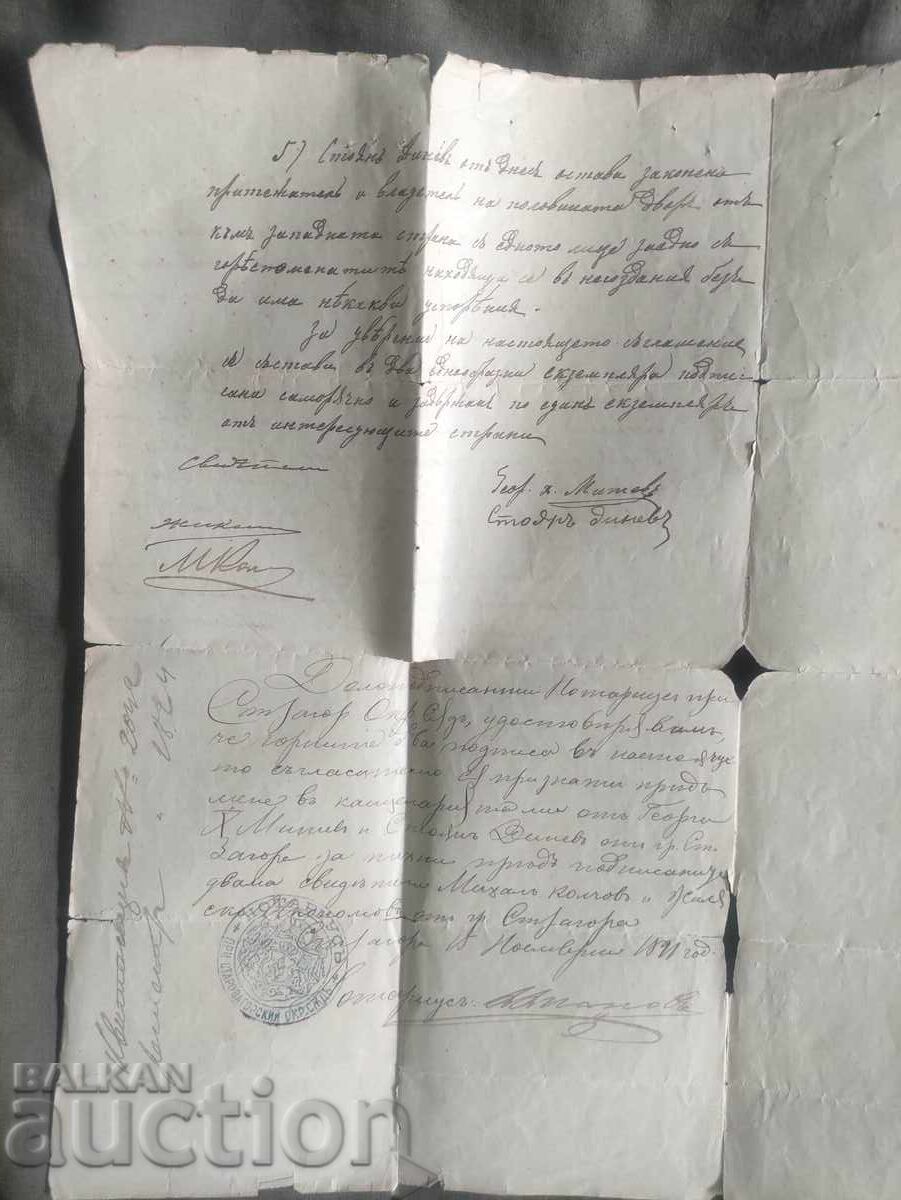 5) Стоянъ Диневъ отъ днесъ остава законенъ
притежателъ и владетелъ на половината дворъ отъ
къмъ западната страна съ едното лице заедно съ
горѣспоменатитѣ находящи се въ него здания безъ
да има нѣкакви
За увѣрение на настоящето съглашение
се състави въ два еднообразни екземпляра подпи-
сани саморъчно и задържани по единъ екземпляръ
отъ интересующите страни
Свидѣтели
Геор. х. Митевъ
Стоянъ Диневъ
МКол
Долоподписанни Нотариусъ при
Ст. Загор. Окр. Съдъ, удостовѣрявамъ,
че горните два подписа въ настояще-
то съгласително са признати предъ
мене въ канцеларията ми отъ Георги
Х Митевъ и Стоянъ Диневъ отъ гр. Ст.
Загора за тихни предъ подписаните
двама свидѣтели Михалъ Колчовъ и
отъ гр. Ст. Загора
Ст. Загора 18 Ноемврий 1891 год.
Нотариусъ:
НОТАРИУСЪ
ПРИ СТАРОЗАГОРСКИЙ ОКР. СѪДЪ
№ 2042
" 1824
BALKAN
auction